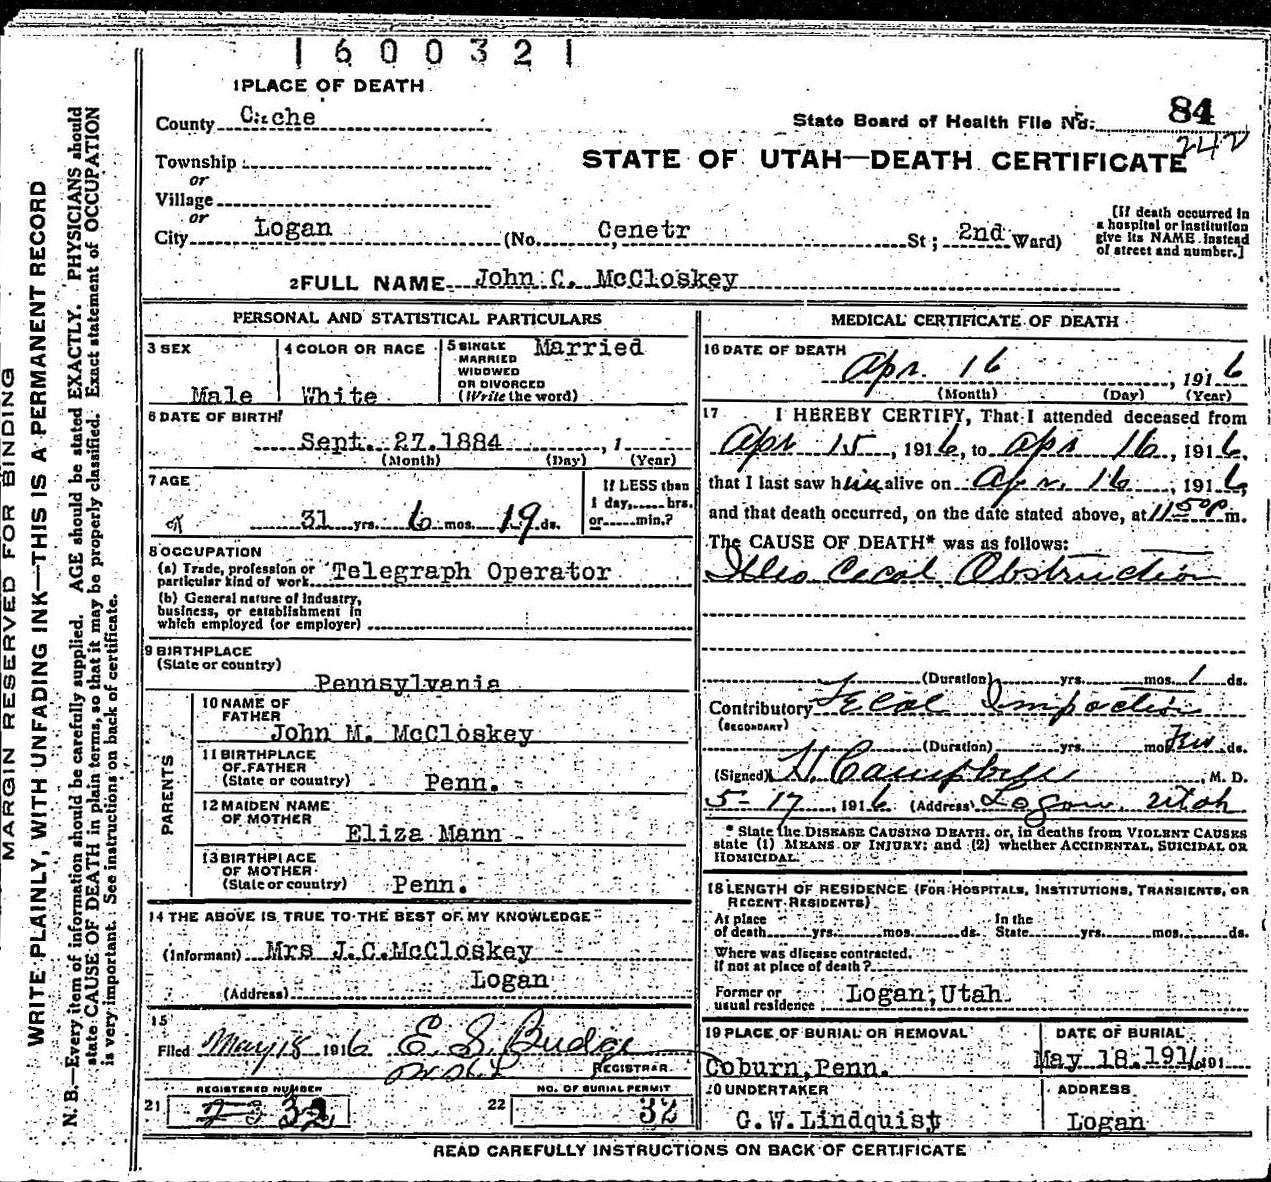 1600321
1 PLACE OF DEATH
County Cache
State Board of Health File No. 84
242
Township
or
Village
or
STATE OF UTAH—DEATH CERTIFICATE
City Logan (No. Cenetr St; 2nd Ward)
[If death occurred in
a hospital or institution
give its NAME instead
of street and number.]
2 FULL NAME John C. McCloskey
PERSONAL AND STATISTICAL PARTICULARS
3 SEX
Male
4 COLOR OR RACE
White
5 SINGLE
MARRIED
WIDOWED
OR DIVORCED
(Write the word)
Married
6 DATE OF BIRTH
Sept. 27.1884 , 1
(Month) (Day) (Year)
7 AGE
31 yrs. 6 mos. 19 ds.
If LESS than
1 day, hrs.
or min.?
8 OCCUPATION
(a) Trade, profession or
particular kind of work Telegraph Operator
(b) General nature of industry,
business, or establishment in
which employed (or employer)
9 BIRTHPLACE
(State or country)
Pennsylvania
PARENTS
10 NAME OF
FATHER
John M. McCloskey
11 BIRTHPLACE
OF FATHER
(State or country) Penn.
12 MAIDEN NAME
OF MOTHER
Eliza Mann
13 BIRTHPLACE
OF MOTHER
(State or country) Penn.
14 THE ABOVE IS TRUE TO THE BEST OF MY KNOWLEDGE
(Informant) Mrs J.C.McCloskey
(Address) Logan
15
Filed May 18 1916 E. S. Budge
REGISTRAR
REGISTERED NUMBER
21 32
NO. OF BURIAL PERMIT
22 32
MEDICAL CERTIFICATE OF DEATH
16 DATE OF DEATH
Apr. 16 , 1916
(Month) (Day) (Year)
17 I HEREBY CERTIFY, That I attended deceased from
Apr 15 , 1916, to Apr 16 , 1916,
that I last saw him alive on Apr. 16 , 1916,
and that death occurred, on the date stated above, at 11 50 P m.
The CAUSE OF DEATH* was as follows:
Illeo Cecal Obstruction
(Duration) yrs. mos. 1 ds.
Contributory Fecal Impaction
(SECONDARY)
(Duration) yrs. mos. Few ds.
(Signed) H Campbell , M. D.
5-17 , 1916 (Address) Logan, Utah
* State the DISEASE CAUSING DEATH, or, in deaths from VIOLENT CAUSES
state (1) MEANS OF INJURY; and (2) whether ACCIDENTAL, SUICIDAL OR
HOMICIDAL.
18 LENGTH OF RESIDENCE (FOR HOSPITALS, INSTITUTIONS, TRANSIENTS, OR
RECENT RESIDENTS)
At place In the
of death yrs. mos. ds. State yrs. mos. ds.
Where was disease contracted,
if not at place of death?
Former or
usual residence Logan, Utah.
19 PLACE OF BURIAL OR REMOVAL
Coburn, Penn.
DATE OF BURIAL
May 18.1916 191
20 UNDERTAKER
G.W.Lindquist
ADDRESS
Logan
READ CAREFULLY INSTRUCTIONS ON BACK OF CERTIFICATE
MARGIN RESERVED FOR BINDING
WRITE PLAINLY, WITH UNFADING INK—THIS IS A PERMANENT RECORD
N. B.—Every item of information should be carefully supplied. AGE should be stated EXACTLY. PHYSICIANS should
state CAUSE OF DEATH in plain terms, so that it may be properly classified. Exact statement of OCCUPATION
is very important. See instructions on back of certificate.